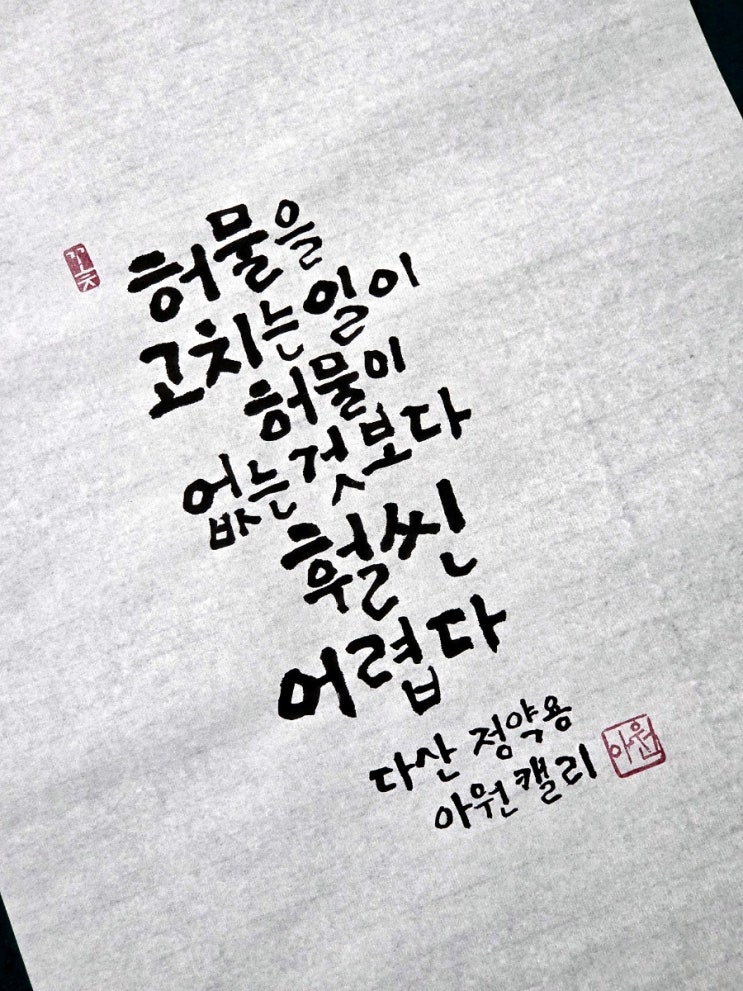 꽃
허물을
고치는일이
허물이
없는것보다
훨씬
어렵다
다산 정약용
아원캘리
아원